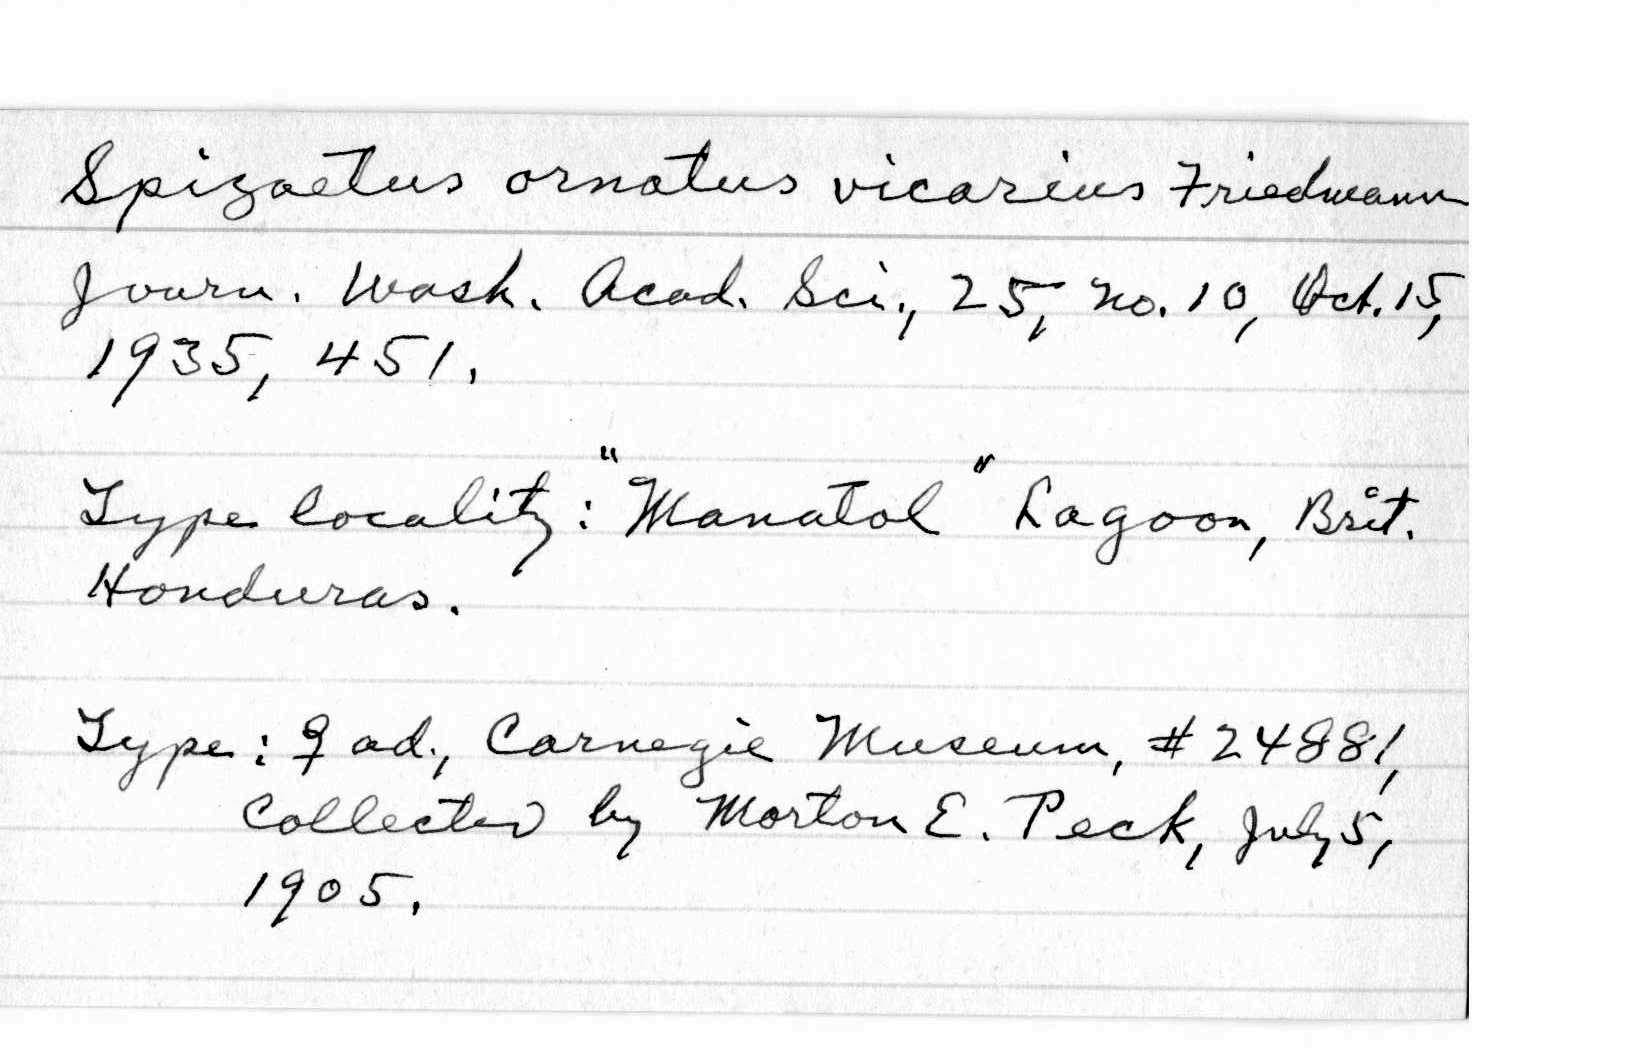 Spizaetus ornatus vicarius Friedmann
Journ. Wash. Acad. Sci., 25, no. 10, Oct. 15,
1935, 451.
Type locality: "Manatol" Lagoon, Brit.
Honduras.
Type: ♀ ad., Carnegie Museum, #24881,
collected by Morton E. Peck, July 5,
1905.